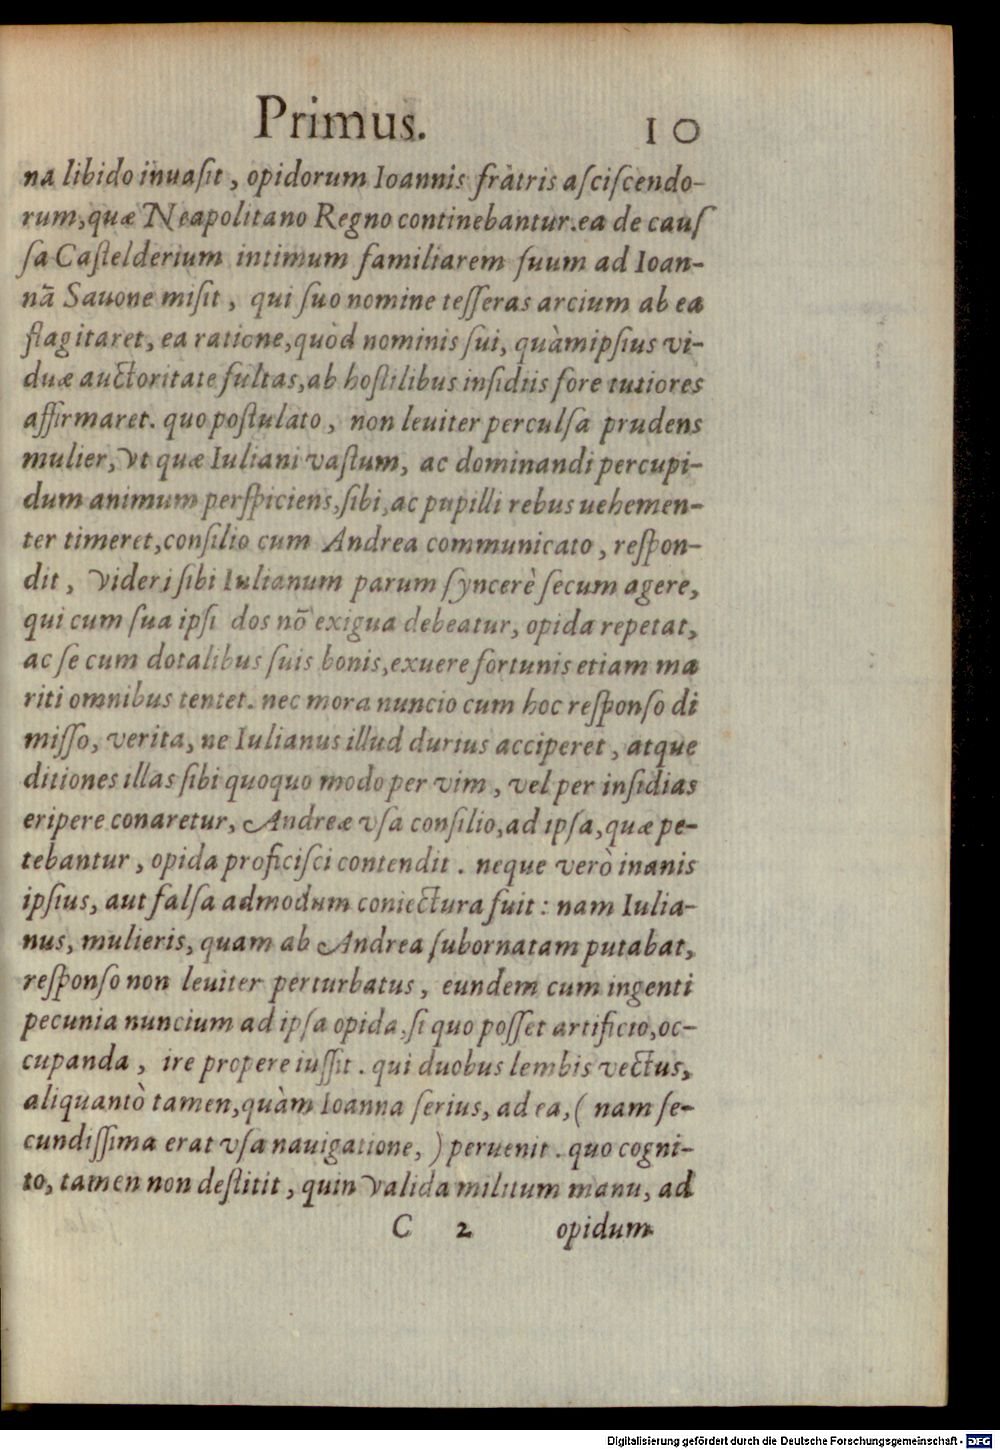 Primus. 10
na libido inuaſit, opidorum Ioannis fràtris aſciſcendo-
rum, quæ Neapolitano Regno continebantur. ea de cauſ
ſa Caſtelderium intimum familiarem ſuum ad Ioan-
nā Sauone miſit, qui ſuo nomine teſſeras arcium ab ea
flagitaret, ea ratione, quòd nominis ſui, quàm ipſius vi-
duæ auctoritate fultas, ab hoſtilibus inſidiis fore tutiores
affirmaret. quo poſtulato, non leuiter perculſa prudens
mulier, vt quæ Iuliani vaſtum, ac dominandi percupi-
dum animum perſpiciens, ſibi, ac pupilli rebus uehemen-
ter timeret, conſilio cum Andrea communicato, reſpon-
dit, videri ſibi Iulianum parum ſyncerè ſecum agere,
qui cum ſua ipſi dos nō exigua debeatur, opida repetat,
ac ſe cum dotalibus ſuis bonis, exuere fortunis etiam ma
riti omnibus tentet. nec mora nuncio cum hoc reſponſo di
miſſo, verita, ne Iulianus illud durius acciperet, atque
ditiones illas ſibi quoquo modo per vim, vel per inſidias
eripere conaretur, Andreæ vſa conſilio, ad ipſa, quæ pe-
tebantur, opida proficiſci contendit. neque verò inanis
ipſius, aut falſa admodum coniectura fuit: nam Iulia-
nus, mulieris, quam ab Andrea ſubornatam putabat,
reſponſo non leuiter perturbatus, eundem cum ingenti
pecunia nuncium ad ipſa opida, ſi quo poſſet artificio, oc-
cupanda, ire propere iuſſit. qui duobus lembis vectus,
aliquantò tamen, quàm Ioanna ſerius, ad ea, ( nam ſe-
cundiſſima erat vſa nauigatione, ) peruenit. quo cogni-
to, tamen non deſtitit, quin valida militum manu, ad
C 2 opidum
Digitalisierung gefördert durch die Deutsche Forschungsgemeinschaft - DFG